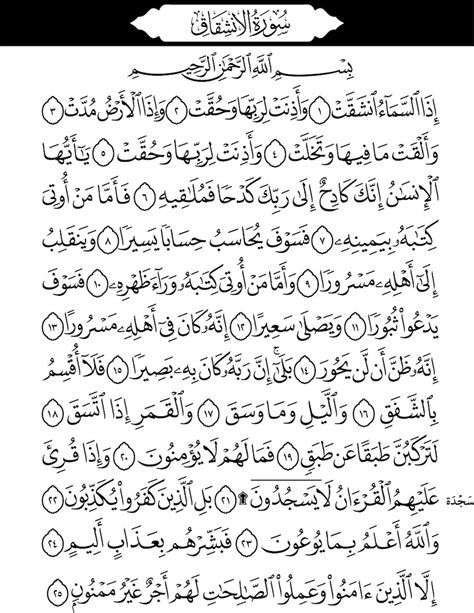 سُورَةُ الِانشِقَاقِ
بِسْمِ ٱللَّهِ ٱلرَّحْمَٰنِ ٱلرَّحِيمِ
إِذَا ٱلسَّمَآءُ ٱنشَقَّتْ ١ وَأَذِنَتْ لِرَبِّهَا وَحُقَّتْ ٢ وَإِذَا ٱلْأَرْضُ مُدَّتْ ٣
وَأَلْقَتْ مَا فِيهَا وَتَخَلَّتْ ٤ وَأَذِنَتْ لِرَبِّهَا وَحُقَّتْ ٥ يَٰٓأَيُّهَا
ٱلْإِنسَٰنُ إِنَّكَ كَادِحٌ إِلَىٰ رَبِّكَ كَدْحًا فَمُلَٰقِيهِ ٦ فَأَمَّا مَنْ أُوتِىَ
كِتَٰبَهُۥ بِيَمِينِهِۦ ٧ فَسَوْفَ يُحَاسَبُ حِسَابًا يَسِيرًا ٨ وَيَنقَلِبُ
إِلَىٰٓ أَهْلِهِۦ مَسْرُورًا ٩ وَأَمَّا مَنْ أُوتِىَ كِتَٰبَهُۥ وَرَآءَ ظَهْرِهِۦ ١٠ فَسَوْفَ
يَدْعُوا۟ ثُبُورًا ١١ وَيَصْلَىٰ سَعِيرًا ١٢ إِنَّهُۥ كَانَ فِىٓ أَهْلِهِۦ مَسْرُورًا ١٣
إِنَّهُۥ ظَنَّ أَن لَّن يَحُورَ ١٤ بَلَىٰٓ إِنَّ رَبَّهُۥ كَانَ بِهِۦ بَصِيرًا ١٥ فَلَآ أُقْسِمُ
بِٱلشَّفَقِ ١٦ وَٱلَّيْلِ وَمَا وَسَقَ ١٧ وَٱلْقَمَرِ إِذَا ٱتَّسَقَ ١٨
لَتَرْكَبُنَّ طَبَقًا عَن طَبَقٍ ١٩ فَمَا لَهُمْ لَا يُؤْمِنُونَ ٢٠ وَإِذَا قُرِئَ
عَلَيْهِمُ ٱلْقُرْءَانُ لَا يَسْجُدُونَ ۩ ٢١ بَلِ ٱلَّذِينَ كَفَرُوا۟ يُكَذِّبُونَ ٢٢ سَجْدَة
وَٱللَّهُ أَعْلَمُ بِمَا يُوعُونَ ٢٣ فَبَشِّرْهُم بِعَذَابٍ أَلِيمٍ ٢٤
إِلَّا ٱلَّذِينَ ءَامَنُوا۟ وَعَمِلُوا۟ ٱلصَّٰلِحَٰتِ لَهُمْ أَجْرٌ غَيْرُ مَمْنُونٍۭ ٢٥